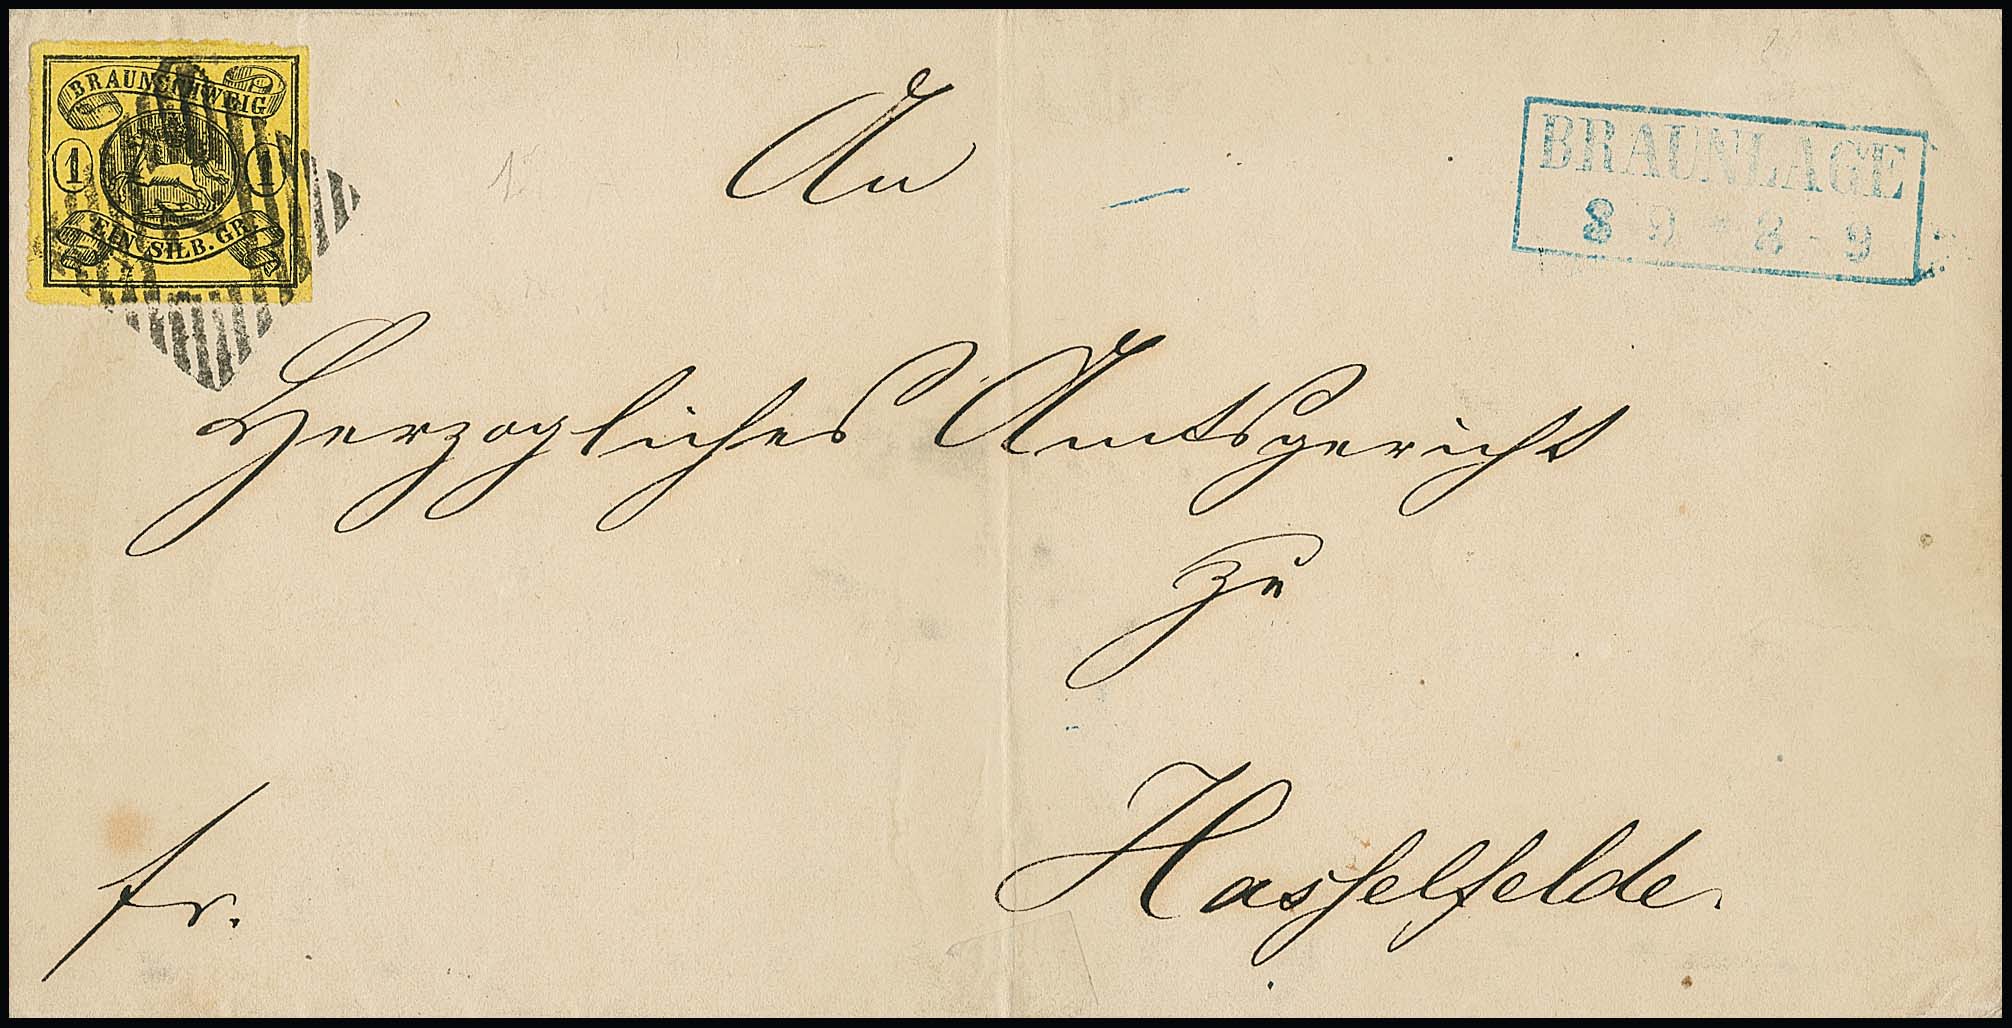 BRAUNSCHWEIG
1 1
EIN SILB. GR.
BRAUNLAGE
An
Herzogliches Amtsgericht
zu
Hasselfelde.
fr.